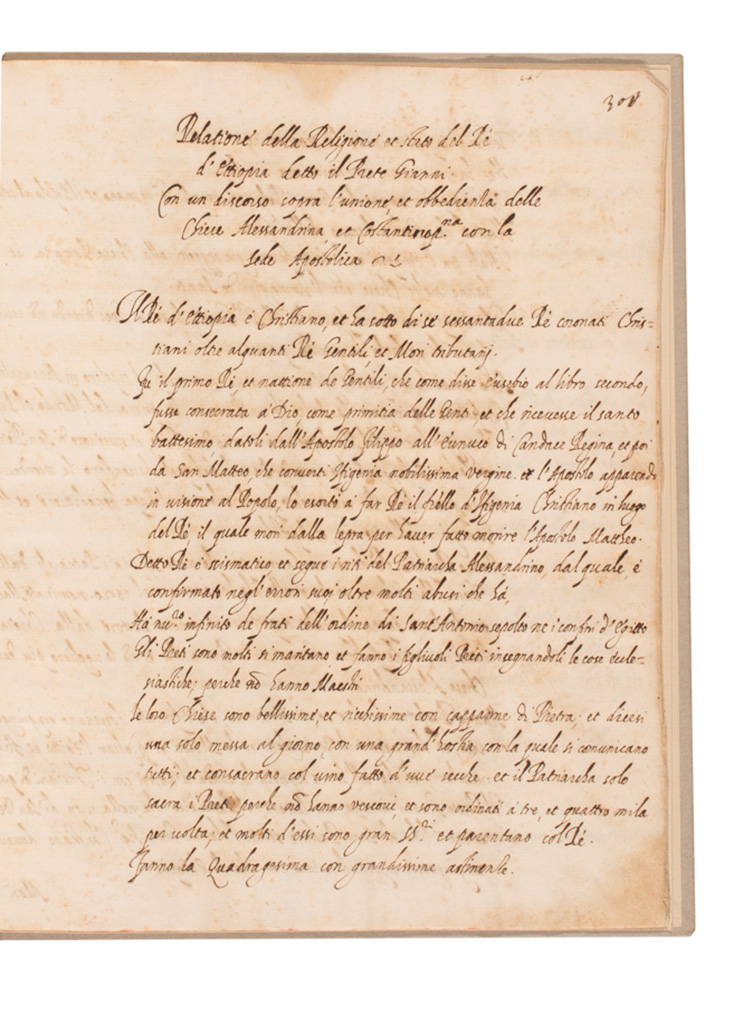 301
Relatione della Religione et stato del Rè
d'Ettiopia detto il Prete Gianni.
Con un discorso sopra l'unione, et obbedienza delle
Chiese Alessandrina, et Costantinop.na con la
Sede Apostolica
Il Rè d'Ettiopia è Christiano, et ha sotto di sè sessantadue Rè coronati Chris=
tiani oltre alquanti Rè Gentili, et Mori tributarij.
Fu il primo Rè, et natione de Gentili, che come disse Eusebio al libro secondo,
fusse consecrata à Dio, come primitia delle Genti et che ricevesse il santo
battesimo datoli dall'Apostolo filippo all'Eunuco di Candace Regina, et poi
da San Matteo, che convertì Ifigenia nobilissima vergine. et l'Apostolo apparendo
in visione al Popolo, lo esortò a far Rè il frello d'Ifigenia Christiano in luogo
del Rè, il quale morì dalla lepra per haver fatto morire l'Apostolo Mattheo.
Detto Rè è scismatico et segue i riti del Patriarcha Alessandrino, dal quale, è
confirmato negli errori suoi oltre molti abusi che hà,
Hà nu.ro infinito de frati dell'ordine di Sant'Antonio sepolto ne i confini d'Egitto
Gli Preti sono molti si maritano et fanno i figlivoli Preti insegnandoli le cose eccle=
siastiche; perche nõ hanno Maestri
Le loro Chiese sono bellissime, et ricchissime con cappanne di Pietra; et dicesi
una solo messa al giorno, con una grand'hostia con la quale si comunicano
tutti; et consacrano col vino fatto d'uve secche. et il Patriarcha solo
sacra i Preti perche nõ hanno vescovi, et sono ordinati à tre, et quattro mila
per volta; et molti d'essi sono gran SS.ri et parentano col Rè.
Fanno la Quadragesima con grandissime astinente.